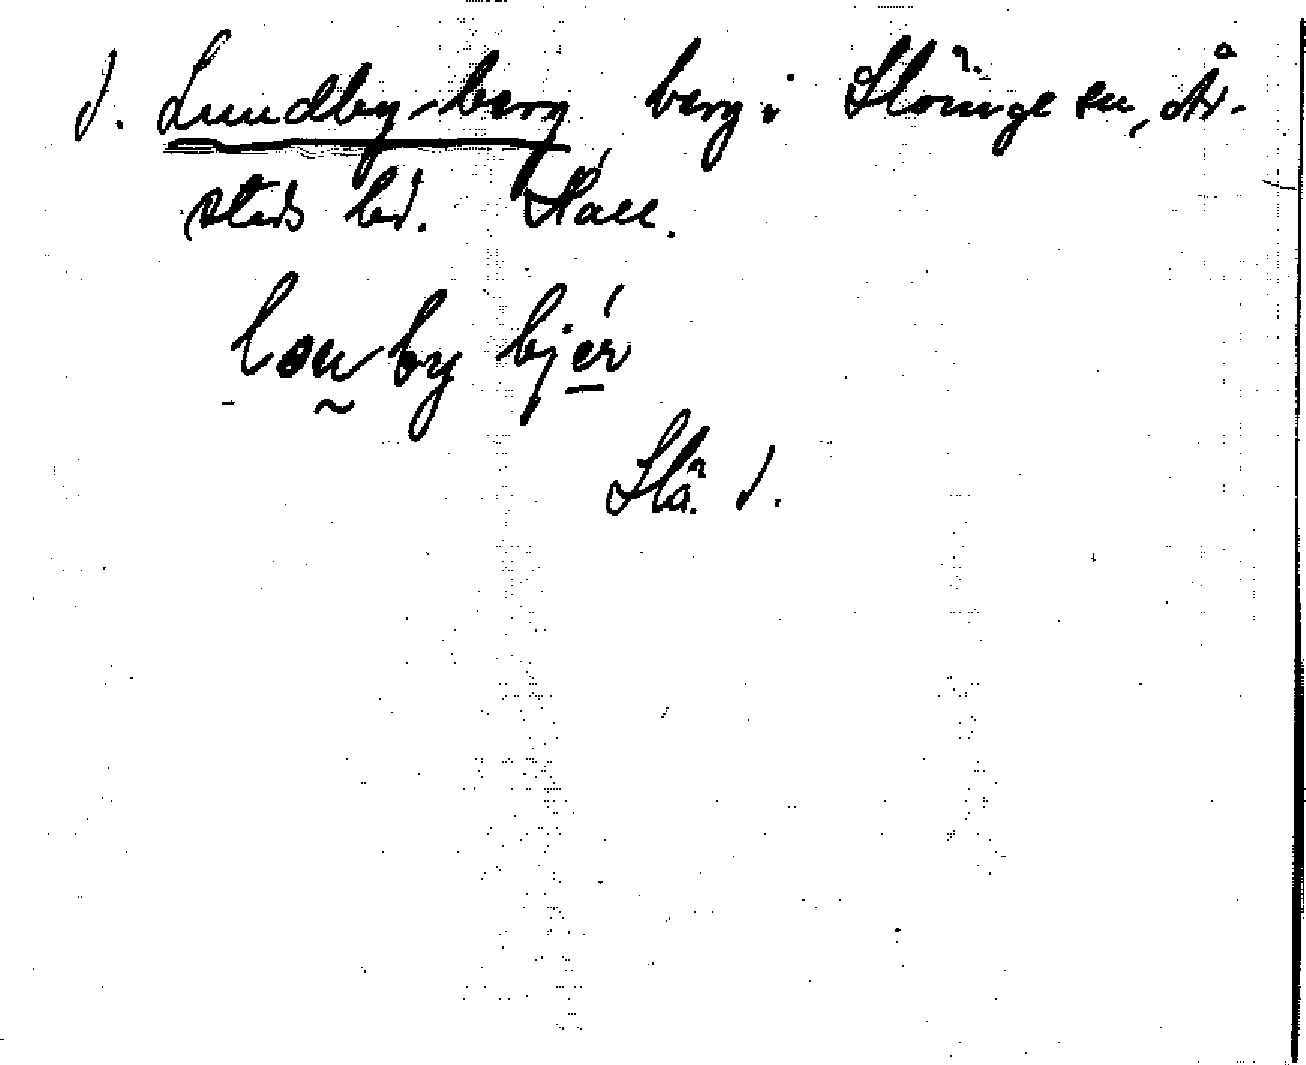 d. Lundby-berg berg i Slöinge sn, År-
stads hd. Hall.
lonby bjér
Slä. d.